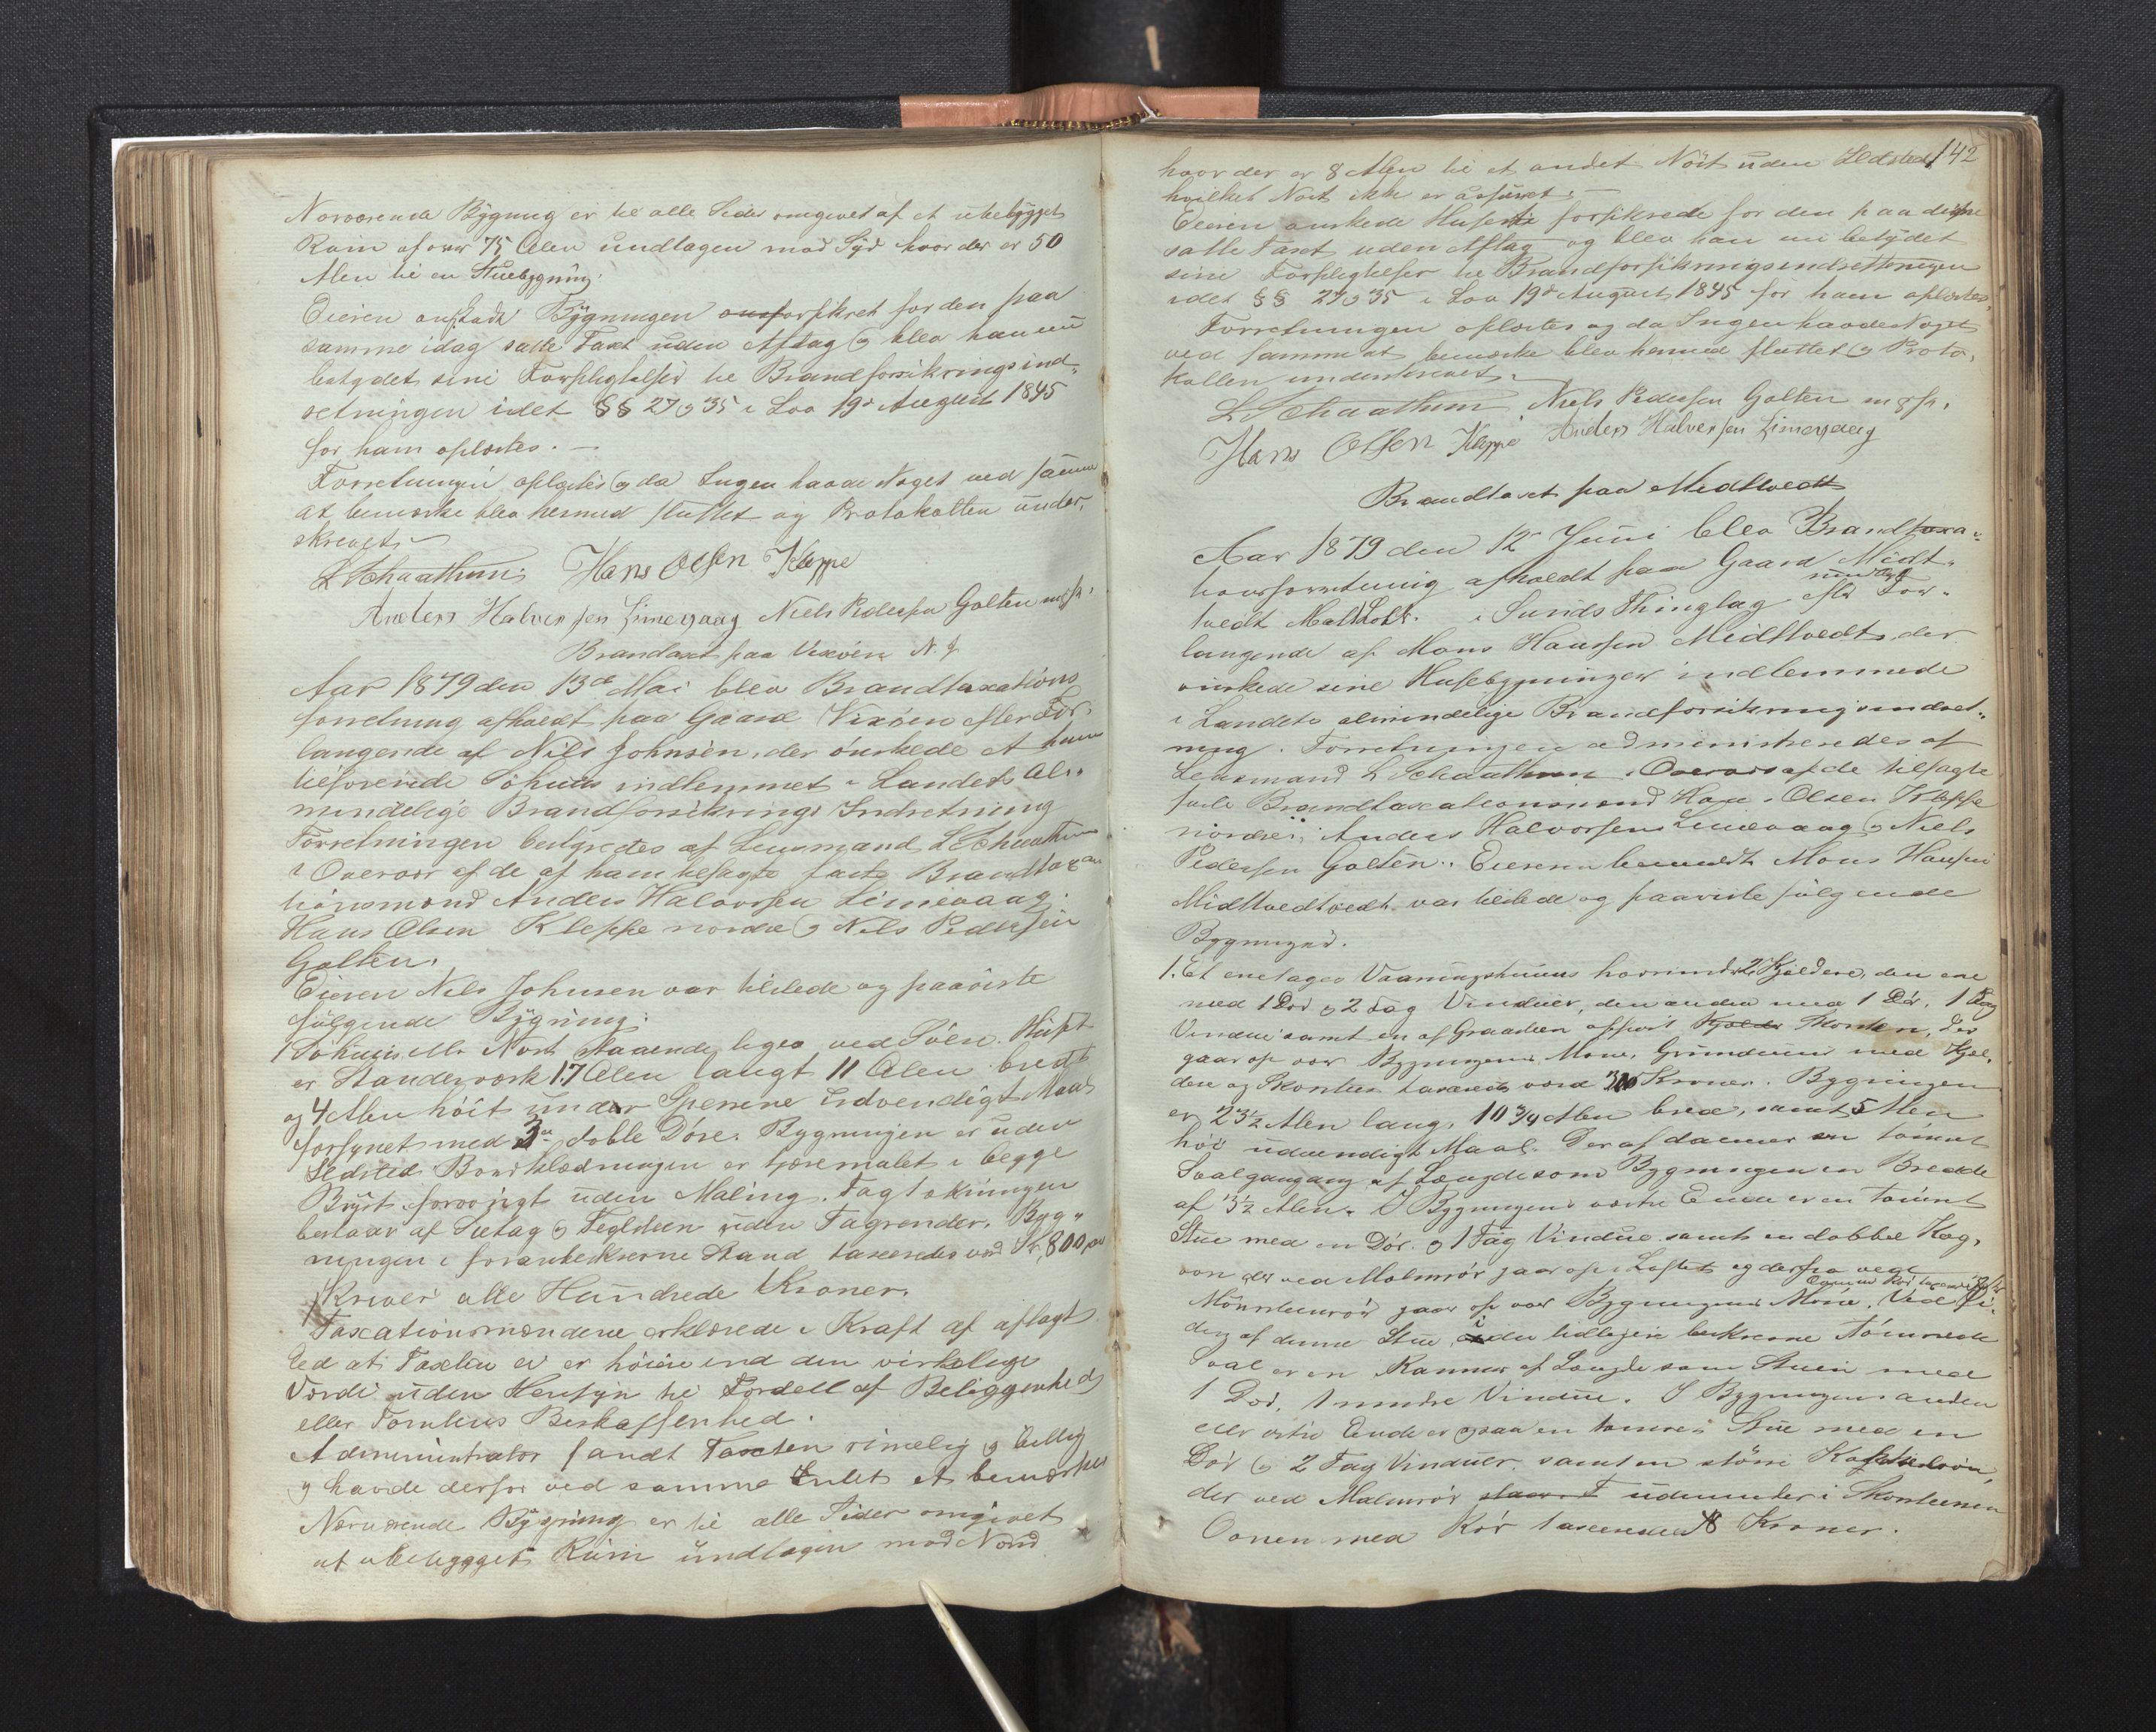 Nærværende Bygning er til alle Sider omgivet af et ubebygget
Rum af over 75 Alen undtagen mod Syd hvor der er 50
Alen til en Stuebygning.
Eieren ønskede Bygningen forsikret for den paa
samme idag satte Taxt uden Aftag og blev han nu
betydet sine Forpligtelser til Brandforsikringsind-
retningen idet §§ 27 og 35 i Lov 19de August 1845
for ham oplæstes. —
Forretningen oplæstes og da Ingen havde Noget ved samme
at bemærke blev hermed sluttet og Protokollen under-
skrevet.
L Schaathun Hans Olsen Kleppe
Anders Halvorsen Limevaag Niels Pedersen Golten m.f.p.
Brandtaxt paa Vixøen N. J
Aar 1879 den 13de Mai blev Brandtaxations
forretning afholdt paa Gaard Vixøen efter For-
langende af Nils Johnsen, der ønskede et ham
tilhørende Søhuus indlemmet i Landets Al-
mindelige Brandforsikrings Indretning
Forretningen bestyredes af Lensmand L Schaathun
i Overvær af de af ham tilsagte faste Brandtaxa
tionsmænd Anders Halvorsen Limevaag,
Hans Olsen Kleppe nordre og Nils Pedersen
Golten.
Eieren Nils Johnsen var tilstede og paaviste
følgende Bygning:
1 Søhuus eller Nøst staaende ligeo ved Søen. Huset
er Standerværk 17 Alen langt 11 Alen bredt
og 4 Alen høit under Sperrene udvendigt Maal
forsynet med 3de doble Døre. Bygningen er uden
Ildsted Bordklædningen er tjæremalet i begge
Bryst forøvrigt uden Maling. Tagtækningen
bestaar af Suetag og Teglsteen uden Tagrender. Byg-
ningen i foranbeskrevne Stand taxeredes ved Kr. 800
skriver otte Hundrede Kroner.
Taxationsmændene erklærede i Kraft af aflagt
Ed at Taxten ei er høiere end den virkelige
Værdi uden Hensyn til Fordell af Beliggenhed
eller Tomtens Beskaffenhed.
Administrator fandt Taxten rimelig og billig
og havde derfor ved samme Intet at bemærke
Nærværende Bygning er til alle Sider omgivet
af ubebygget Rum undtagen mod Nord
142
hvor der er 8 Alen til et andet Nøst uden Ildsted
hvilket Nøst ikke er assuret. —
Eieren ønskede Husene forsikrede for den paa disse
satte Taxt uden Aftag og blev han nu betydet
sine Forpligtelser til Brandforsikringsindretningen
idet §§ 27 og 35 i Lov 19de August 1845 for ham oplæstes,
Forretningen oplæstes og da Ingen havde Noget
ved samme at bemærke blev hermed sluttet og Proto-
kollen underskrevet.
L Schaathun Niels Pedersen Golten m.f.p.
Hans Olsen Kleppe Anders Halvorsen Limevaag
Brandtaxt paa Midttvedt
Aar 1879 den 12te Juni blev Brandtaxa-
tionsforretning afholdt paa Gaard Midt-
tvedt i Sunds Thinglag efter For-
langende af Mons Hansen Midttvedt, der
ønskede sine Husebygninger indlemmede
i Landets almindelige Brandforsikringsindret-
ning. Forretningen administreredes af
Lensmand L Schaathun i Overvær af de tilsagte
faste Brandtaxationsmænd Hans Olsen Kleppe
nordre, Anders Halvorsen Limevaag og Niels
Pedersen Golten. Eieren bemeldt Mons Hansen
Midttvedt var tilstede og paaviste følgende
Bygninger.
1. Et enetages Vaaningshuus hvorunder 2 Kjeldere, den ene
med 1 Dør og 2 Fag Vinduer, den anden med 1 Dør, 1 Fag
Vindue samt en af Graasteen opført Skorsten, der
gaar op over Bygningens Møne, Grundmur med Kjel-
dere og Skorsten taxeredes ved Kroner. Bygningen
er 23½ Alen lang, 10¾ Alen bred, samt 5 Alen
høi udvendigt Maal. Deraf danner en tømret
Svalgangang af Længde som Bygningen en Bredde
af 3½ Alen. I Bygningens østre Ende er en tømret
Stue med en Dør og 1 Fag Vindue samt en dobbel Kog-
ovn der ved Malmrør gaar op i Loftet og derfra ved
Muursteensrør gaar op over Bygningens Møne. Ved Si-
den af denne Stue, i den tidligere beskrevne tømrede
Sval er en Kammer af Længde som Stuen med
1 Dør, 1 mindre Vindue. I Bygningens anden
eller østre Ende er ogsaa en tømret Stue med en
Dør og 2 Fag Vinduer samt en større
der ved Malmrør udmunder i Skorstenen
Ovnen med Rør taxeredes Kroner.